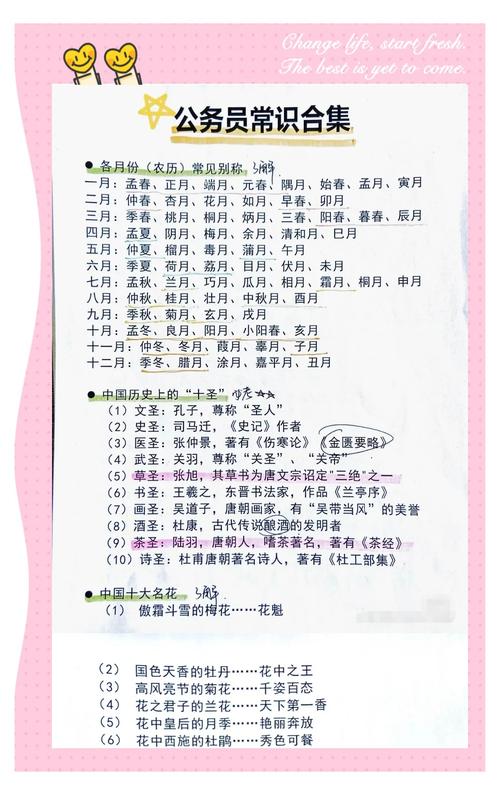 Change life, start fresh.
The best is yet to come.
公务员常识合集
● 各月份（农历）常见别称 了解
一月：孟春、正月、端月、元春、隅月、始春、孟月、寅月
二月：仲春、杏月、花月、如月、早春、卯月
三月：季春、桃月、桐月、炳月、三春、阳春、暮春、辰月
四月：孟夏、阴月、梅月、余月、清和月、巳月
五月：仲夏、榴月、毒月、蒲月、午月
六月：季夏、荷月、荔月、目月、伏月、未月
七月：孟秋、兰月、巧月、瓜月、相月、霜月、桐月、申月
八月：仲秋、桂月、壮月、中秋月、酉月
九月：季秋、菊月、玄月、戌月
十月：孟冬、良月、阳月、小阳春、亥月
十一月：仲冬、冬月、葭月、辜月、子月
十二月：季冬、腊月、涂月、嘉平月、丑月
● 中国历史上的“十圣”
（1）文圣：孔子，尊称“圣人”
（2）史圣：司马迁，《史记》作者
（3）医圣：张仲景，著有《伤寒论》《金匮要略》
（4）武圣：关羽，尊称“关圣”、“关帝”
（5）草圣：张旭，其草书为唐文宗诏定“三绝”之一
（6）书圣：王羲之，东晋书法家，作品《兰亭序》
（7）画圣：吴道子，唐朝画家，有“吴带当风”的美誉
（8）酒圣：杜康，古代传说酿酒的发明者
（9）茶圣：陆羽，唐朝人，嗜茶著名，著有《茶经》
（10）诗圣：杜甫唐朝著名诗人，著有《杜工部集》
● 中国十大名花 了解
（1） 傲霜斗雪的梅花……花魁
（2） 国色天香的牡丹……花中之王
（3） 高风亮节的菊花……千姿百态
（4） 花之君子的兰花……天下第一香
（5） 花中皇后的月季……艳丽奔放
（6） 花中西施的杜鹃……秀色可餐